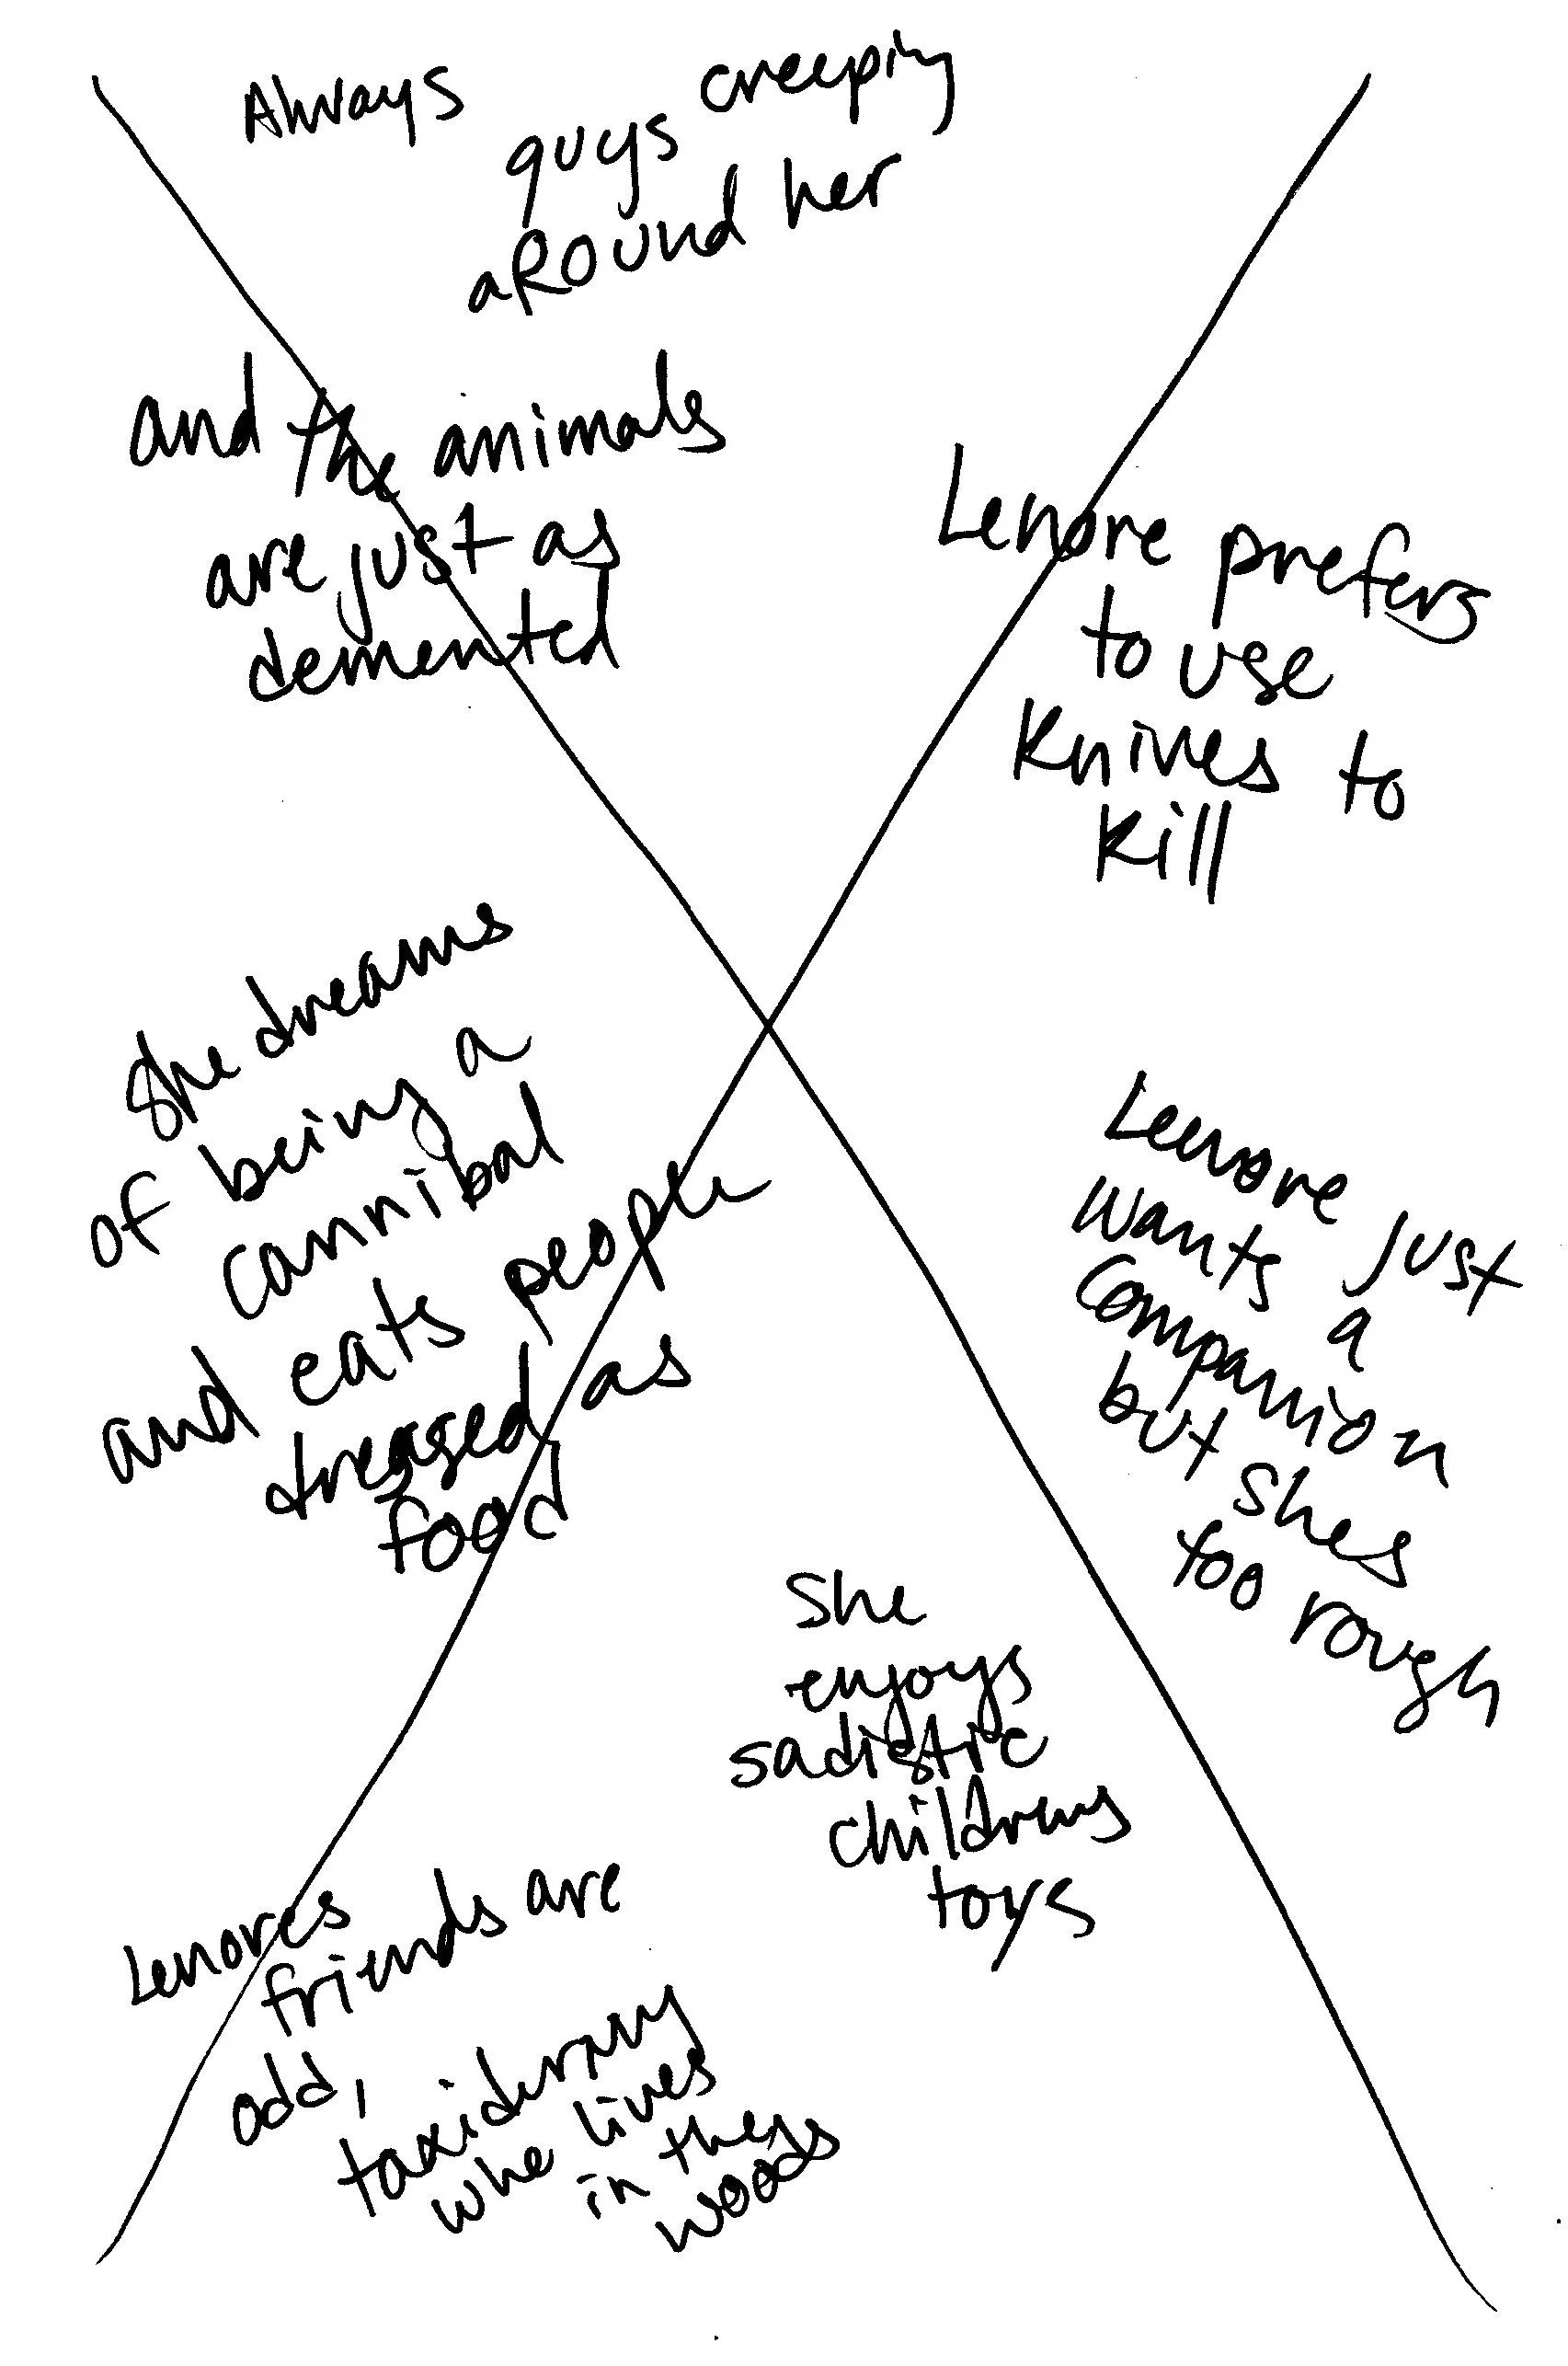 Always
guys creeping
aROUnd her
and the animals
are just as
demented
Lenore prefers
to use
Knives to
Kill
she dreams
of being a
cannibal
and eats people
dressed as
food
Lenore just
wants a
companion
but shes
too rough
she
enjoys
sadistic
childrens
toys
Lenores
friends are
odd,
taxidermy
who lives
in the
woods